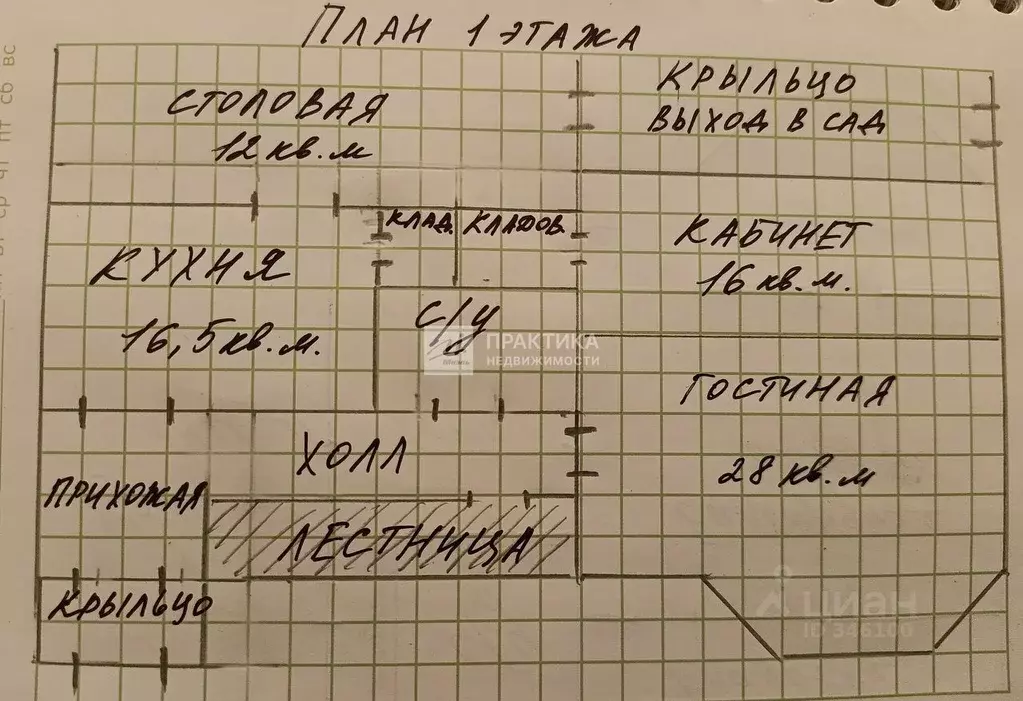 ПЛАН 1 ЭТАЖА
СТОЛОВАЯ
12 кв. м
КРЫЛЬЦО
ВЫХОД В САД
КЛАД.
КЛАДОВ.
КУХНЯ
16,5 кв. м.
С/У
КАБИНЕТ
16 кв. м.
ПРАКТИКА
НЕДВИЖИМОСТИ
ГОСТИНАЯ
28 кв. м
ХОЛЛ
ПРИХОЖАЯ
ЛЕСТНИЦА
КРЫЛЬЦО
циан
ПТ СБ ВС